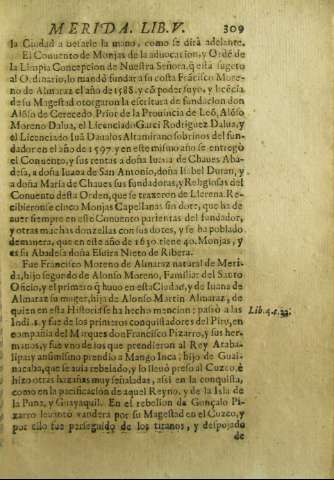 MERIDA. LIB. V. 309
la Ciudad a besarle la mano, como se dirà adelante.
El Conuento de Monjas de la aduocacion, y Ordẽ de
la Limpia Concepcion de Nuestra Señora, q̃ esta sugeto
al Ordinario, lo mandò fundar a su costa Frãcisco More-
no de Almaraz el año de 1588. y cõ poder suyo, y licẽcia
de su Magestad otorgaron la escritura de fundacion don
Alõso de Cerecedo Prior de la Prouincia de Leõ, Alõso
Moreno Dalua, el Licenciado Garci Rodriguez Dalua, y
el Licenciado Iuã Daualos Altamirano sobrinos del fun-
dador en el año de 1597. y en este mismo año se entregò
el Conuento, y sus rentas a doña Iuana de Chaues Aba-
desa, a doña Iuana de San Antonio, doña Isabel Duran, y
a doña Maria de Chaues sus fundadoras, y Religiosas del
Conuento desta Orden, que se traxeron de Llerena. Re-
cibieronse cinco Monjas Capellanas sin dote, que ha de
auer siempre en este Conuento parientas del fundador,
y otras muchas donzellas con sus dotes, y se ha poblado
de manera, que en este año de 1630. tiene 40. Monjas, y
es su Abadesa doña Eluira Nieto de Ribera.
Fue Francisco Moreno de Almaraz natural de Meri-
da, hijo segundo de Alonso Moreno, Familiar del Santo
Oficio, y el primero q̃ huuo en esta Ciudad, y de Iuana de
Almaraz su muger, hija de Alonso Martin Almaraz, de
quien en esta Historia se ha hecho mencion: passò a las
Indias, y fue de los primeros conquistadores del Piru, en
compañia del Marques don Francisco Pizarro, y sus her-
manos, y fue vno de los que prendieron al Rey Ataba-
lipa: y animismo prendio a Mango Inca, hijo de Guai-
nacaba, que se auia rebelado, y lo lleuò preso al Cuzco, è
hizo otras hazañas muy señaladas, assi en la conquista,
como en la pacificacion de aquel Reyno, y de la Isla de
la Puna, y Guayaquil. En el rebelion de Gonçalo Pi-
zarro leuantò vandera por su Magestad en el Cuzco, y
por ello fue perseguido de los tiranos, y despojado
de
Lib. 4. c.